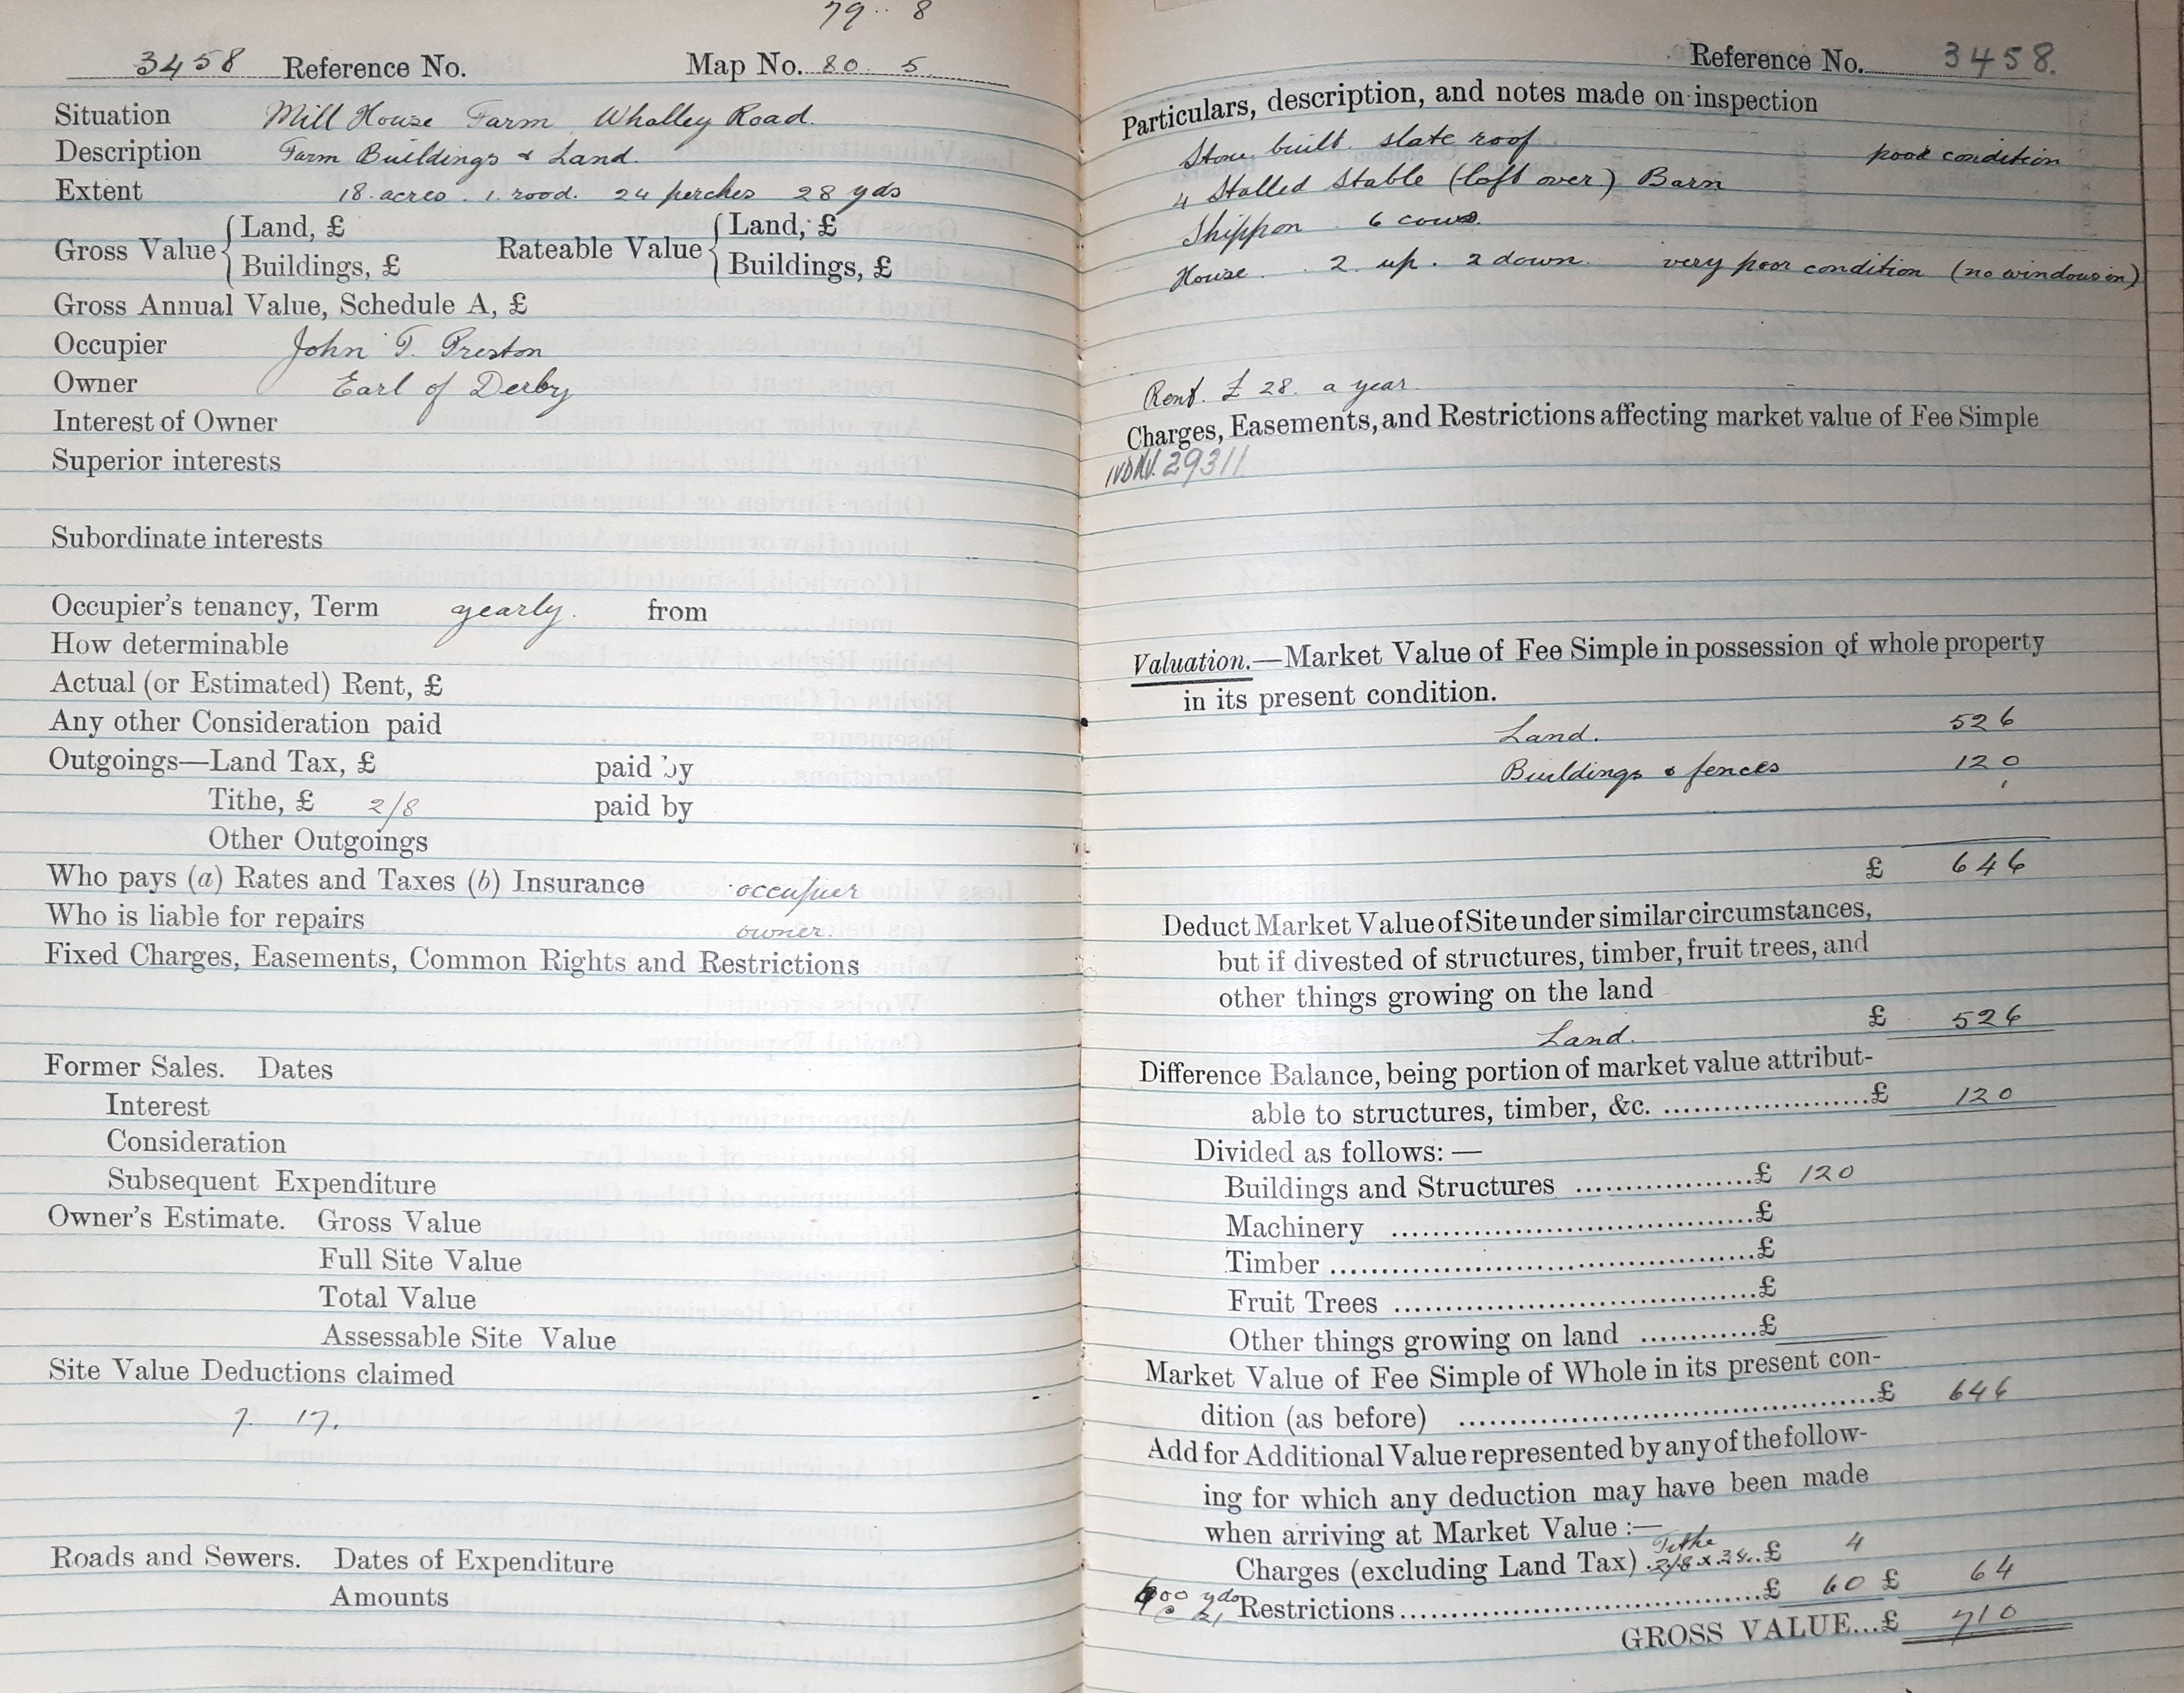 79 8
3458 Reference No. Map No. 80 5
Situation Mill House Farm Whalley Road.
Description Farm Buildings & Land.
Extent 18 acres. 1. rood. 24 perches 28 yds
Gross Value { Land, £ Rateable Value { Land, £
Buildings, £ Buildings, £
Gross Annual Value, Schedule A, £
Occupier John T. Preston
Owner Earl of Derby
Interest of Owner
Superior interests
Subordinate interests
Occupier's tenancy, Term yearly. from
How determinable
Actual (or Estimated) Rent, £
Any other Consideration paid
Outgoings—Land Tax, £ paid by
Tithe, £ 2/8 paid by
Other Outgoings
Who pays (a) Rates and Taxes (b) Insurance occupier
Who is liable for repairs owner.
Fixed Charges, Easements, Common Rights and Restrictions
Former Sales. Dates
Interest
Consideration
Subsequent Expenditure
Owner's Estimate. Gross Value
Full Site Value
Total Value
Assessable Site Value
Site Value Deductions claimed
7. 17.
Roads and Sewers. Dates of Expenditure
Amounts
Reference No. 3458.
Particulars, description, and notes made on inspection
Stone built. slate roof poor condition
4 Stalled Stable (loft over) Barn
Shippon 6 cows.
House. 2 up. 2 down. very poor condition (no windows in)
Rent. £28. a year.
Charges, Easements, and Restrictions affecting market value of Fee Simple
29311
Valuation.—Market Value of Fee Simple in possession of whole property
in its present condition.
Land. 526
Buildings & fences 120
£ 646
Deduct Market Value of Site under similar circumstances,
but if divested of structures, timber, fruit trees, and
other things growing on the land
Land. £ 526
Difference Balance, being portion of market value attribut-
able to structures, timber, &c. ....................£ 120
Divided as follows: —
Buildings and Structures ..................£ 120
Machinery ....................................£
Timber ..........................................£
Fruit Trees ....................................£
Other things growing on land ............£
Market Value of Fee Simple of Whole in its present con-
dition (as before) ..........................................£ 646
Add for Additional Value represented by any of the follow-
ing for which any deduction may have been made
when arriving at Market Value :—
Tithe
Charges (excluding Land Tax) 2/8 x £ 4
yds Restrictions....................................£ 60 £ 64
GROSS VALUE...£ 710